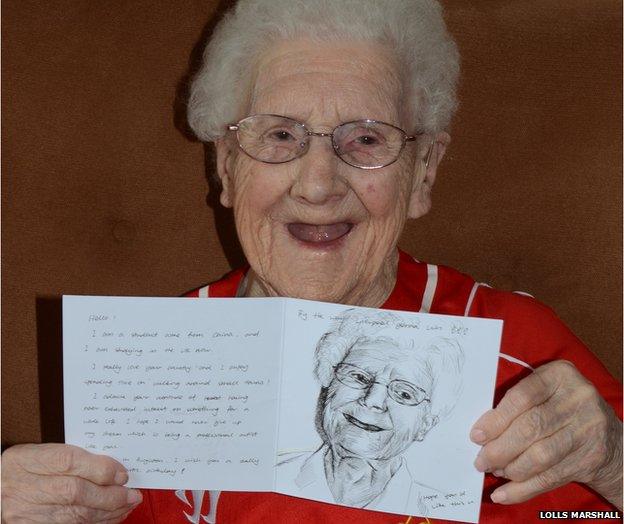 Hello!
I am a student come from China, and
I am studying in the UK now.
I really love your country and I enjoy
spending time on walking around small towns!
I admire your of having
never exhausted interest on something for a
whole life. I hope I would never give up
my dream which is being a professional artist
like you.
England. I wish you a
birthday!
By the way, Liverpool gonna win
Hope you'd
like this
LOLLS MARSHALL